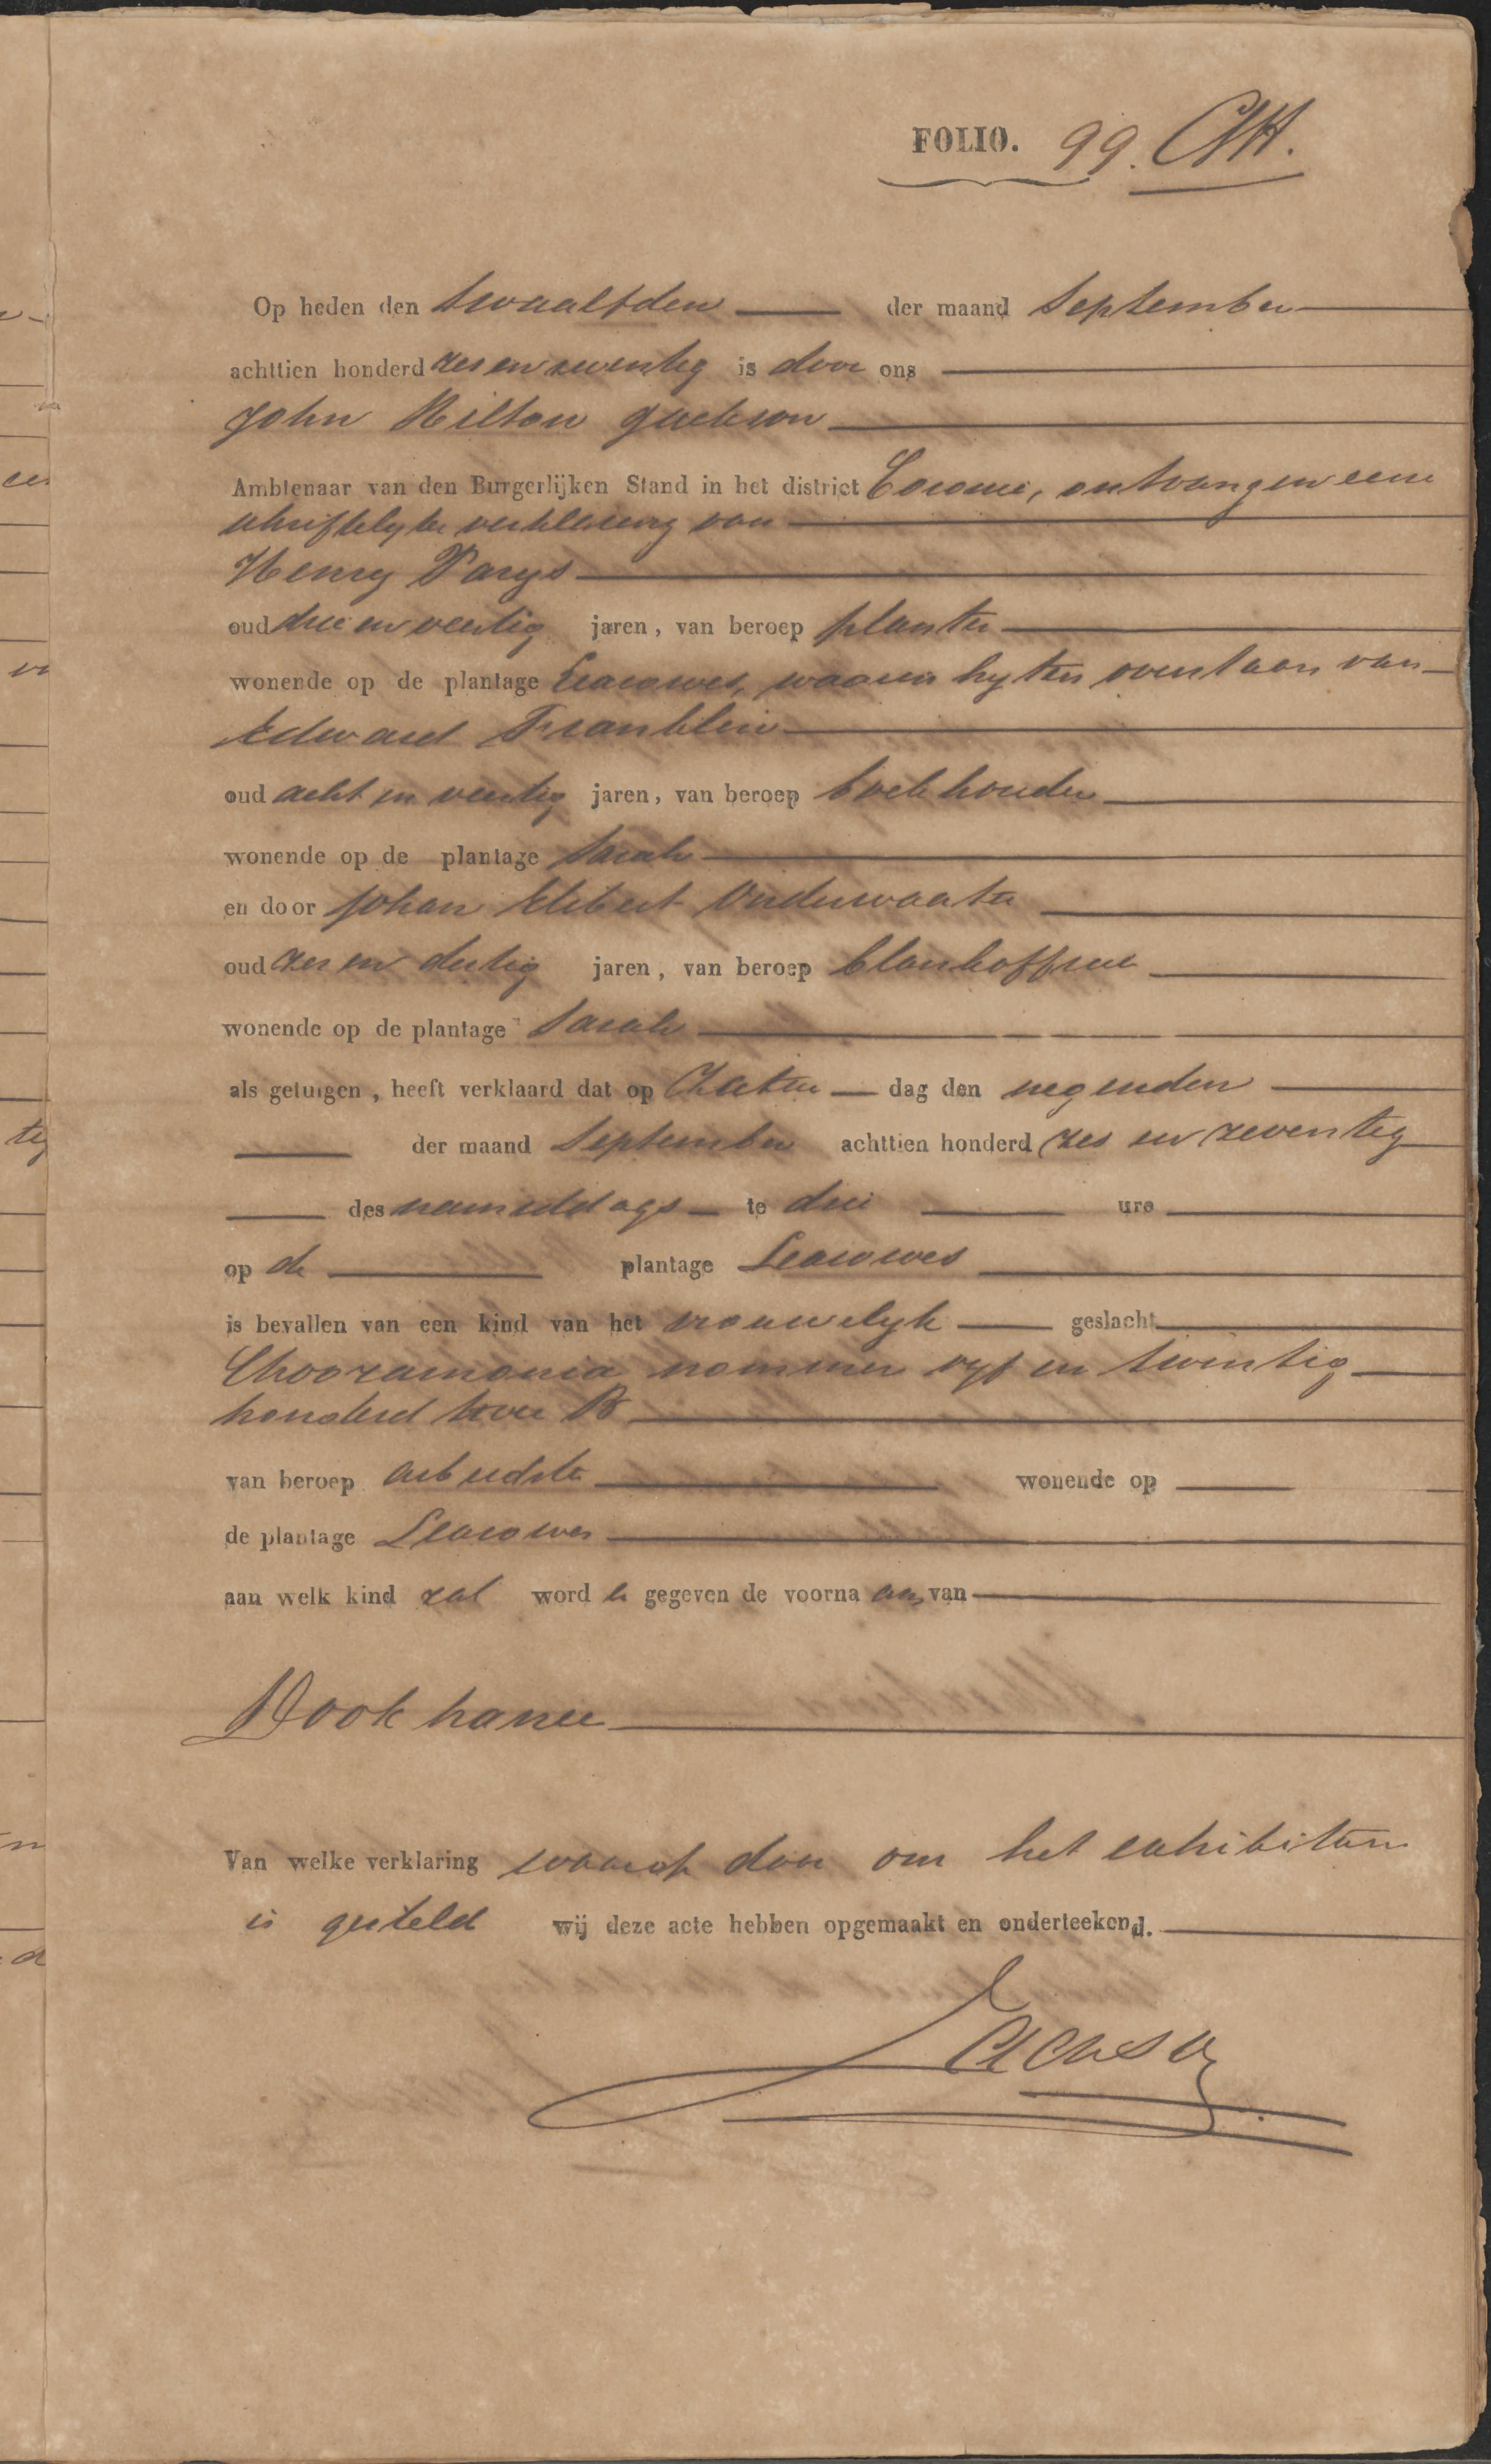 FOLIO. 99.
Op heden den twaalfden der maand September
achttien honderd zes en zeventig is door ons
John Hilton Jackson
Ambtenaar van den Burgerlijken Stand in het district Coronie, ontvangen eene
schriftelyke verklaring van
Henry Parys
oud drie en veertig jaren, van beroep planter
wonende op de plantage Leasowes, waarin hy ten overstaan van
Edward Franklin
oud acht en veertig jaren, van beroep boekhouder
wonende op de plantage Sarah
en door Johan Elibert Onderwaater
oud zes en dertig jaren, van beroep blankofficier
wonende op de plantage Sarah
als getuigen, heeft verklaard dat op Zater dag den negenden
der maand September achttien honderd zes en zeventig
des namiddags te drie ure
op de plantage Leasowes
is bevallen van een kind van het vrouwelyk geslacht
Chooramonia nommer vyf en twintig
honderd twee B
van beroep arbeidster wonende op
de plantage Leasowes
aan welk kind zal word en gegeven de voorna am van
Dookhanee
Van welke verklaring waarop door ons het exhibitum
is gesteld wij deze acte hebben opgemaakt en onderteekend.
Jackson